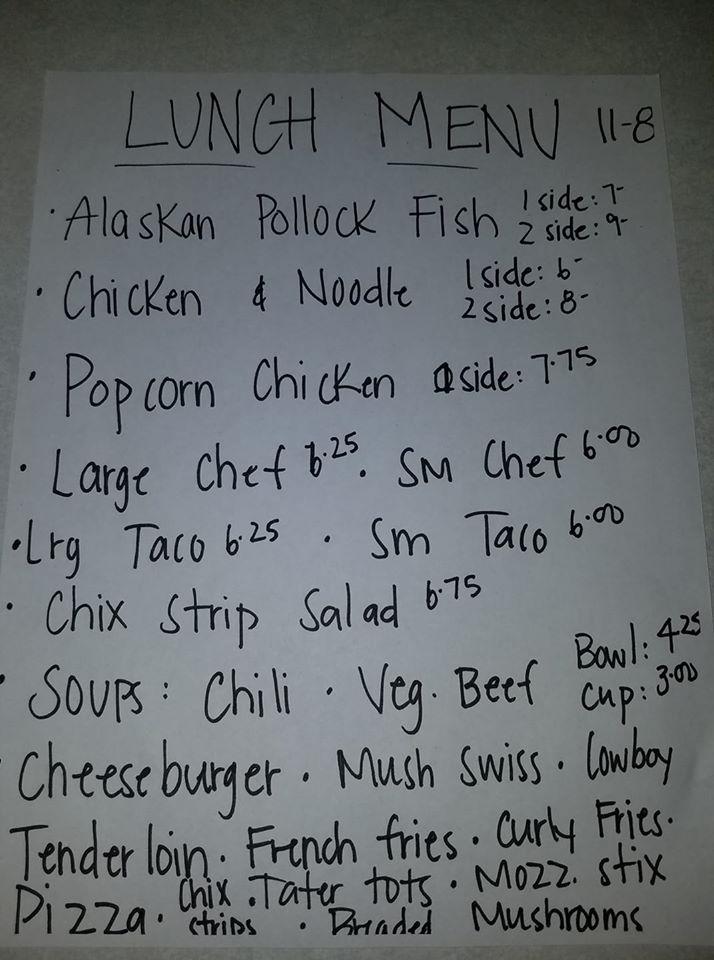 LUNCH MENU 11-8
· Alaskan Pollock Fish 1 side: 7- 2 side: 9-
· Chicken & Noodle 1 side: 6- 2 side: 8-
· Popcorn Chicken side: 7.75
· Large Chef 6.25 · SM Chef 6.00
· Lrg Taco 6.25 · Sm Taco 6.00
· Chix Strip Salad 6.75
· Soups: Chili · Veg. Beef Bowl: 4.25 Cup: 3.00
Cheeseburger · Mush Swiss · Cowboy
Tenderloin · French fries · Curly Fries ·
Pizza · Chix strips · Tater tots · Mozz. stix
· Breaded Mushrooms